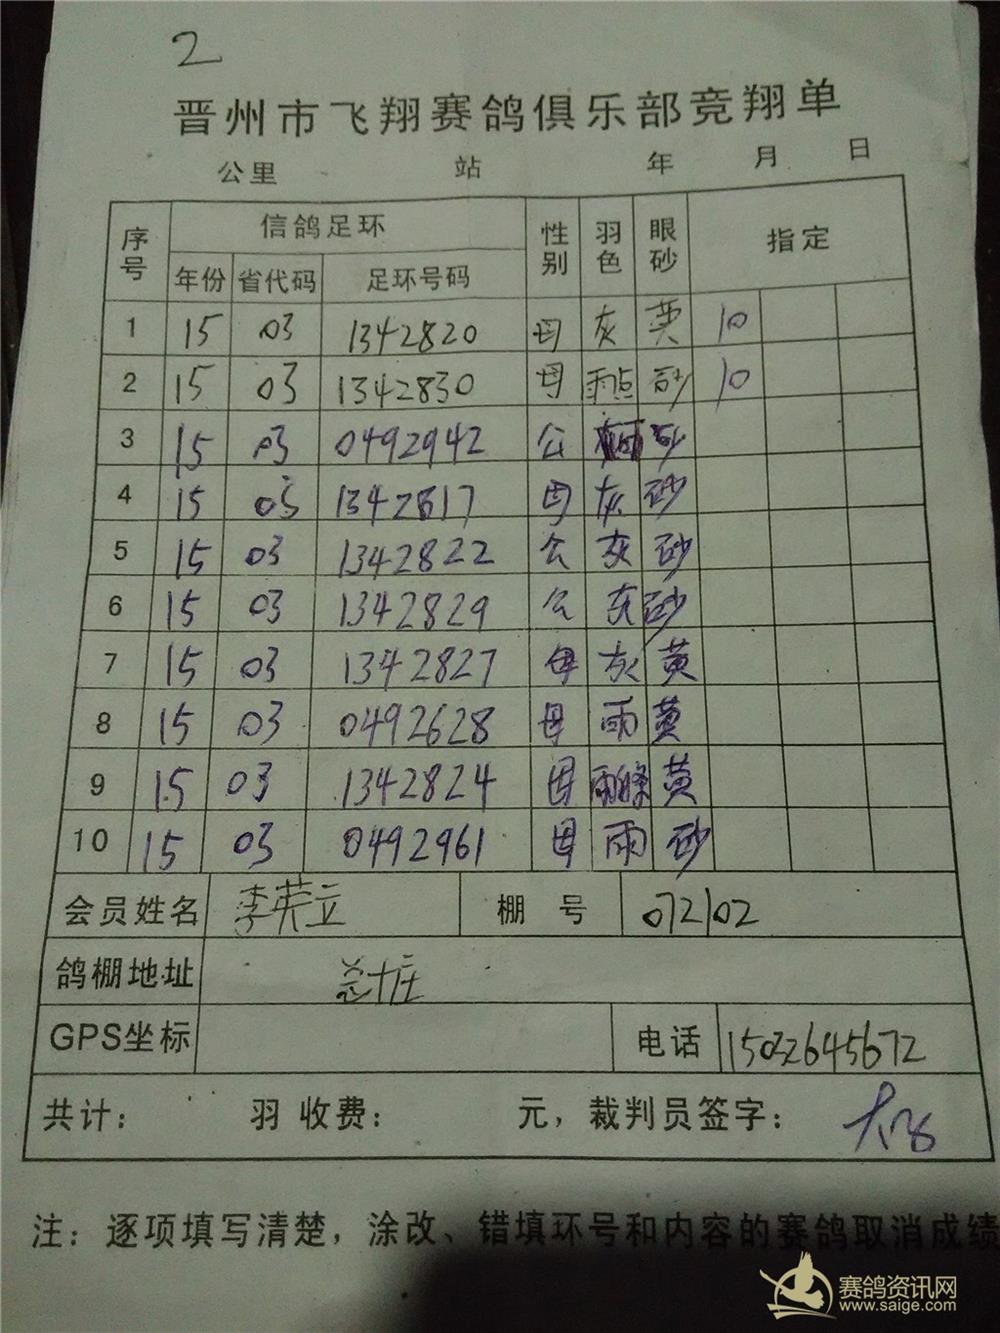 2
晋州市飞翔赛鸽俱乐部竞翔单
公里 站 年 月 日
序号 信鸽足环 性别 羽色 眼砂 指定
年份 省代码 足环号码
1 15 03 1342820 母 灰 黄 10
2 15 03 1342830 母 雨点 砂 10
3 15 03 0492942 公 砂
4 15 03 1342817 母 灰 砂
5 15 03 1342822 公 灰 砂
6 15 03 1342829 公 灰 砂
7 15 03 1342827 母 灰 黄
8 15 03 0492628 母 雨 黄
9 15 03 1342824 母 雨條 黄
10 15 03 0492961 母 雨 砂
会员姓名 李 立 棚号 072102
鸽棚地址 总十庄
GPS坐标 电话 15032645672
共计： 羽 收费： 元，裁判员签字：
注：逐项填写清楚，涂改、错填环号和内容的赛鸽取消成绩
赛鸽资讯网
www.saige.com